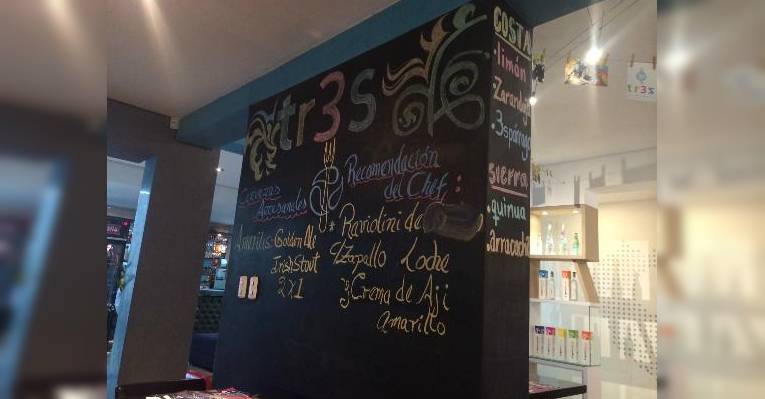 tr3s
Cervezas
Artesanales
Golden Ale
Irish Stout
2x1
Recomendación
del Chef:
* Raviolini de
Zapallo Loche
y Crema de Aji
Amarillo
COSTA
·limón
·Zarandaja
·3spárrago
sierra
·quinua
·arracacha
tr3s